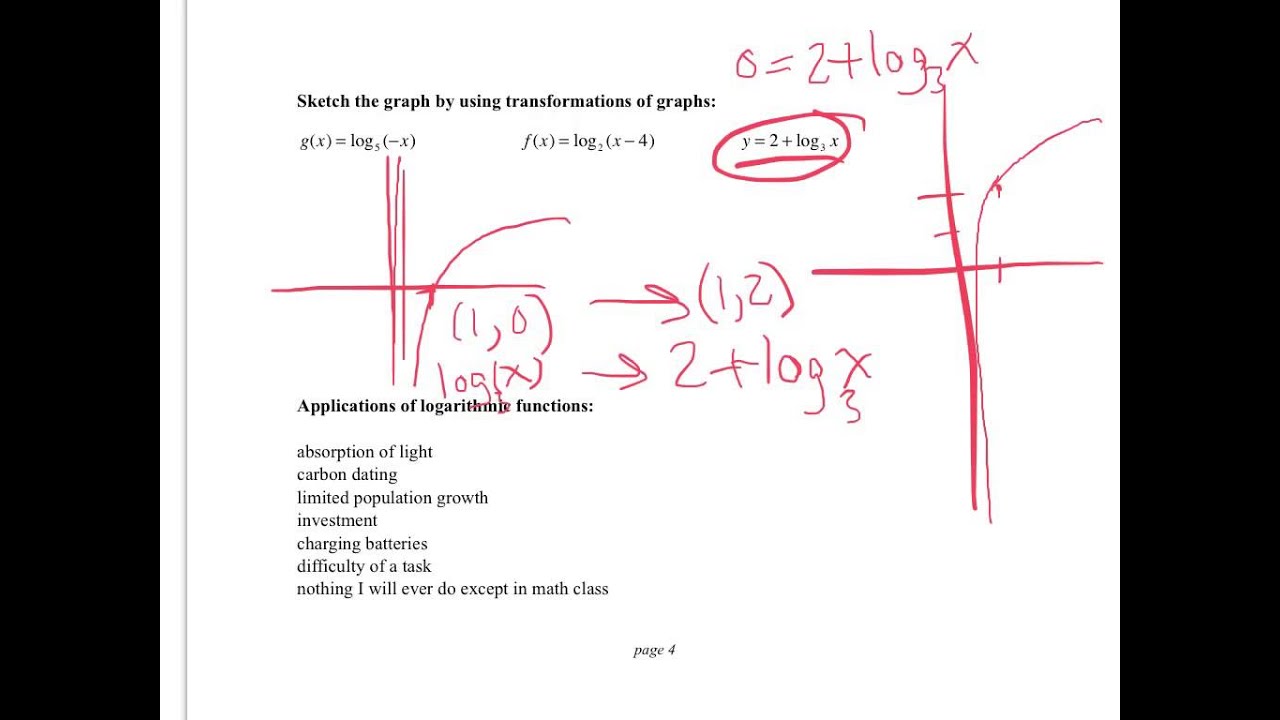 0 = 2 + log₃ x
Sketch the graph by using transformations of graphs:
g(x) = log₅(−x) f(x) = log₂(x − 4) y = 2 + log₃ x
(1, 0) → (1, 2)
log₃(x) → 2 + log₃ x
Applications of logarithmic functions:
absorption of light
carbon dating
limited population growth
investment
charging batteries
difficulty of a task
nothing I will ever do except in math class
page 4